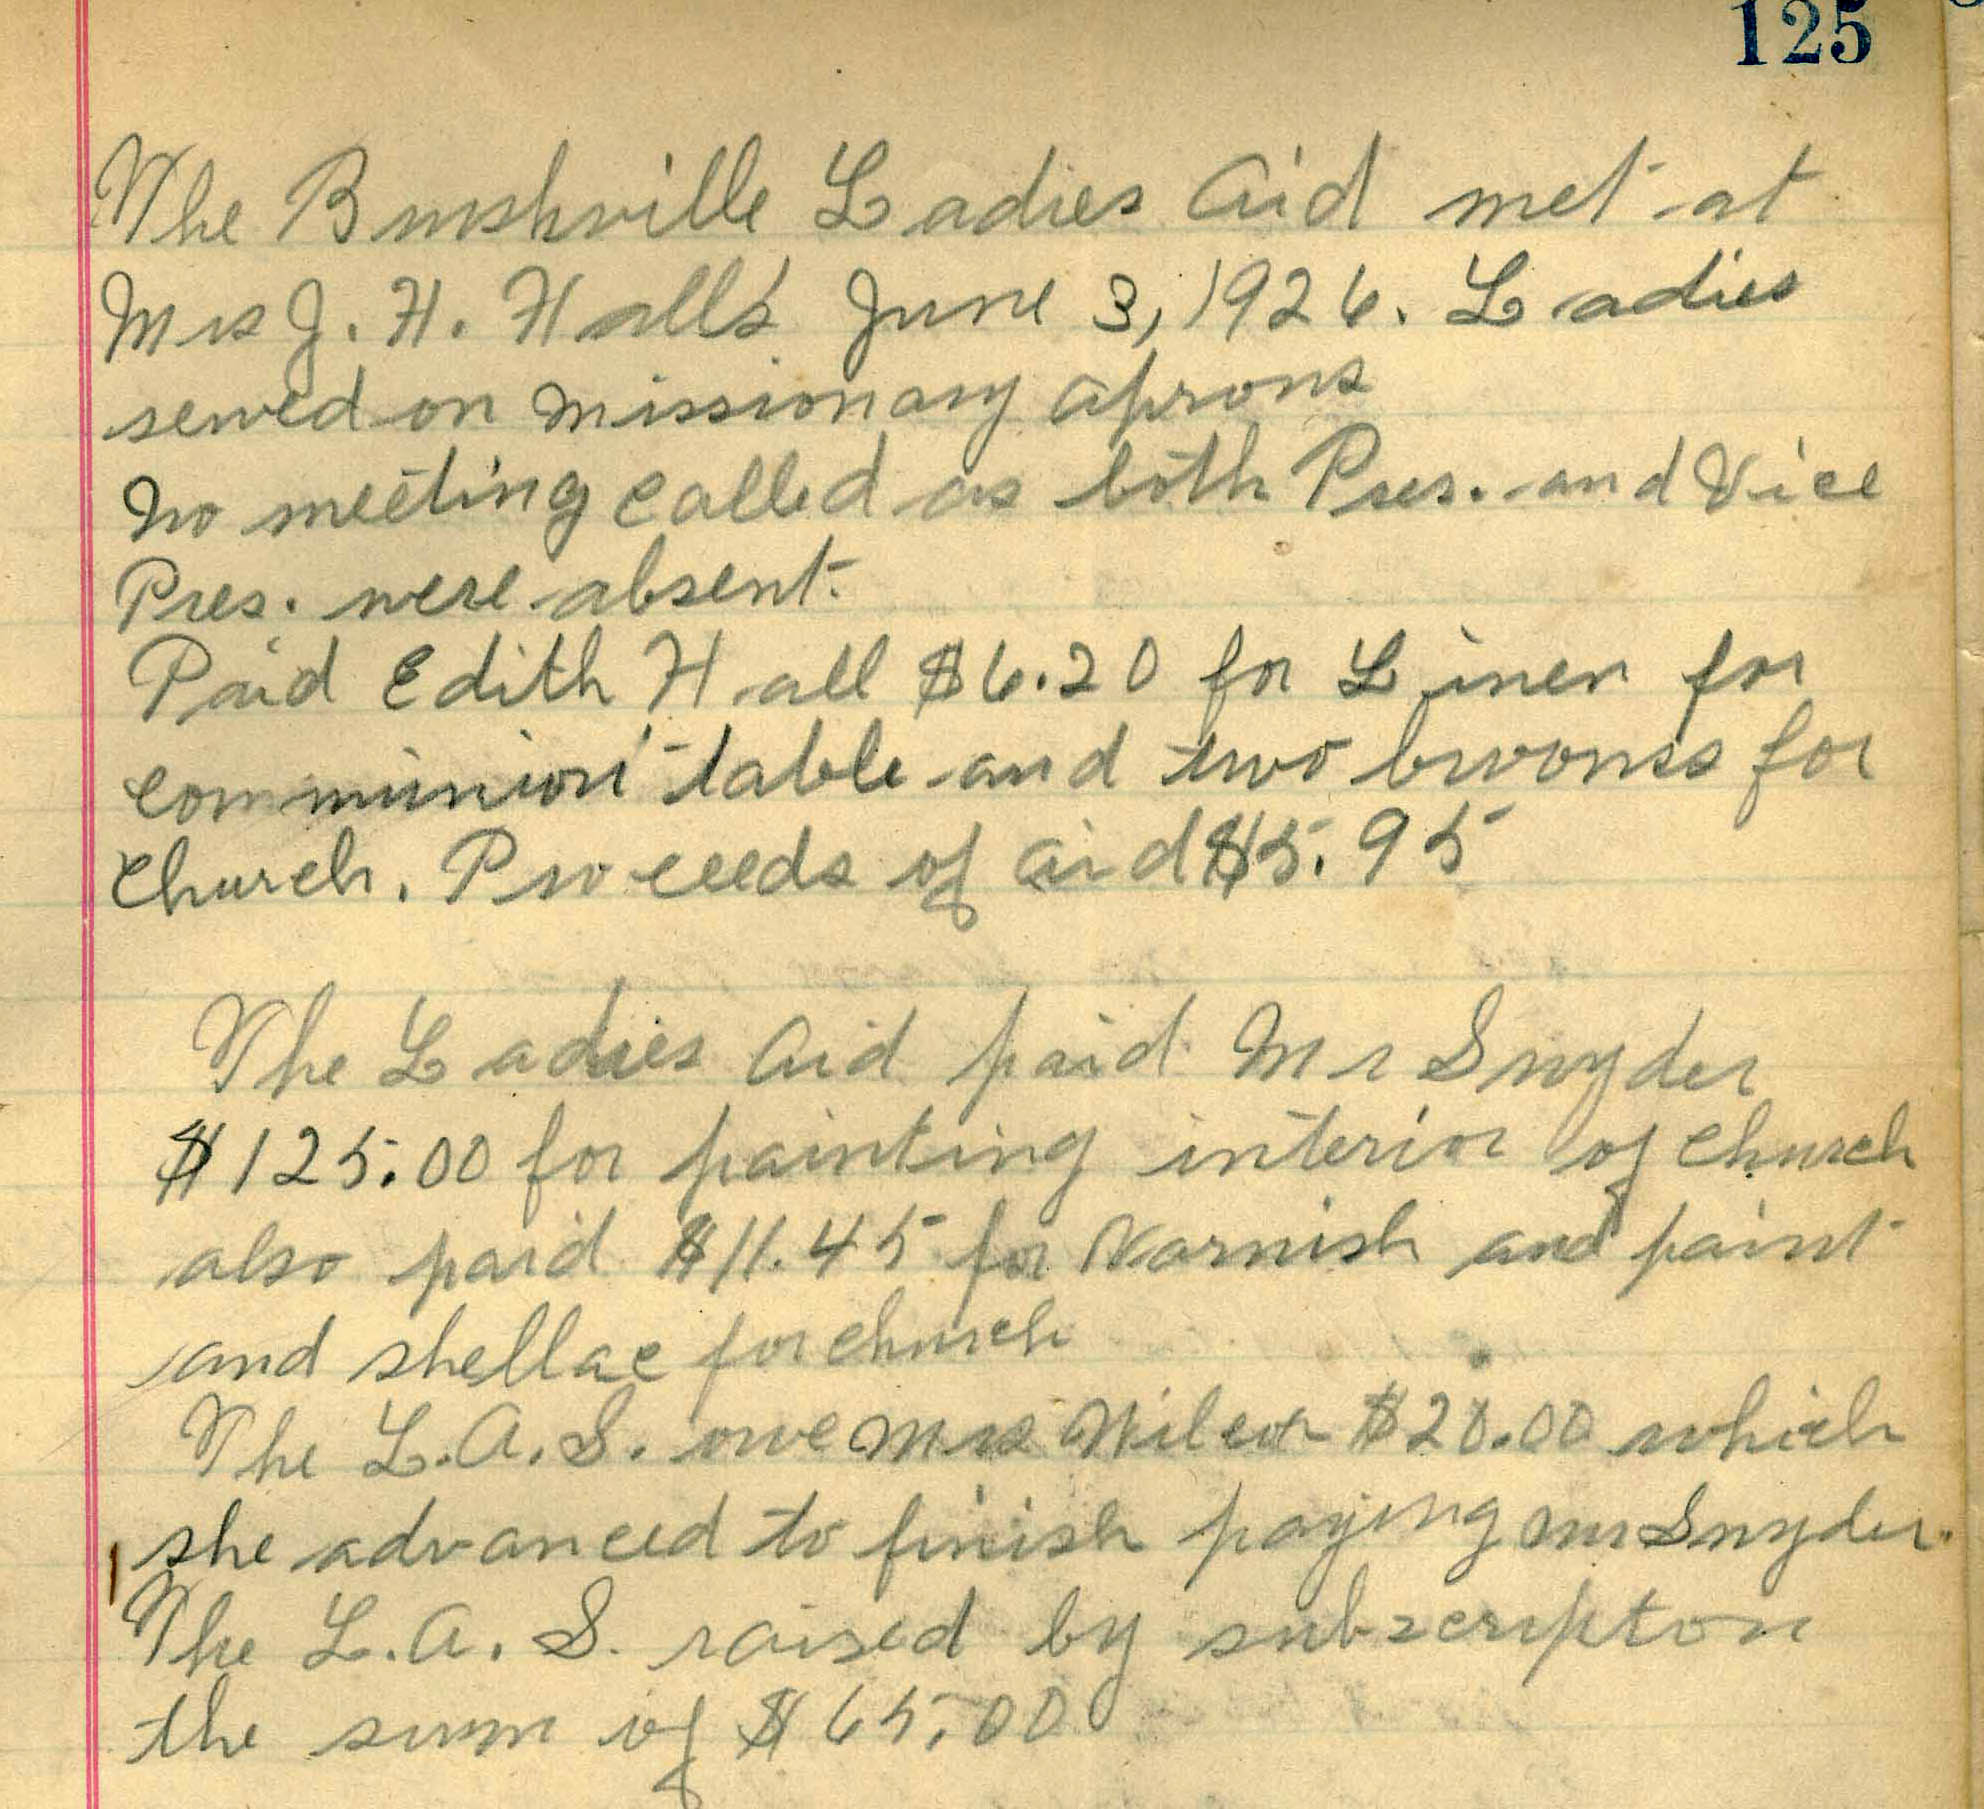 125
The Bushville Ladies Aid met at
Mrs J. H. Hall's June 3, 1926. Ladies
sewed on missionary aprons
No meeting called as both Pres. and Vice
Pres. were absent.
Paid Edith Hall $6.20 for Linen for
communion table and two brooms for
church. Proceeds of aid $5.95
The Ladies Aid paid Mr Snyder
$125.00 for painting interior of church
also paid $11.45 for Varnish and paint
and shellac for church
The L.A.S. owe Mrs Wilcox $20.00 which
she advanced to finish paying Mr Snyder.
The L.A.S. raised by subscripton
the sum of $65.00